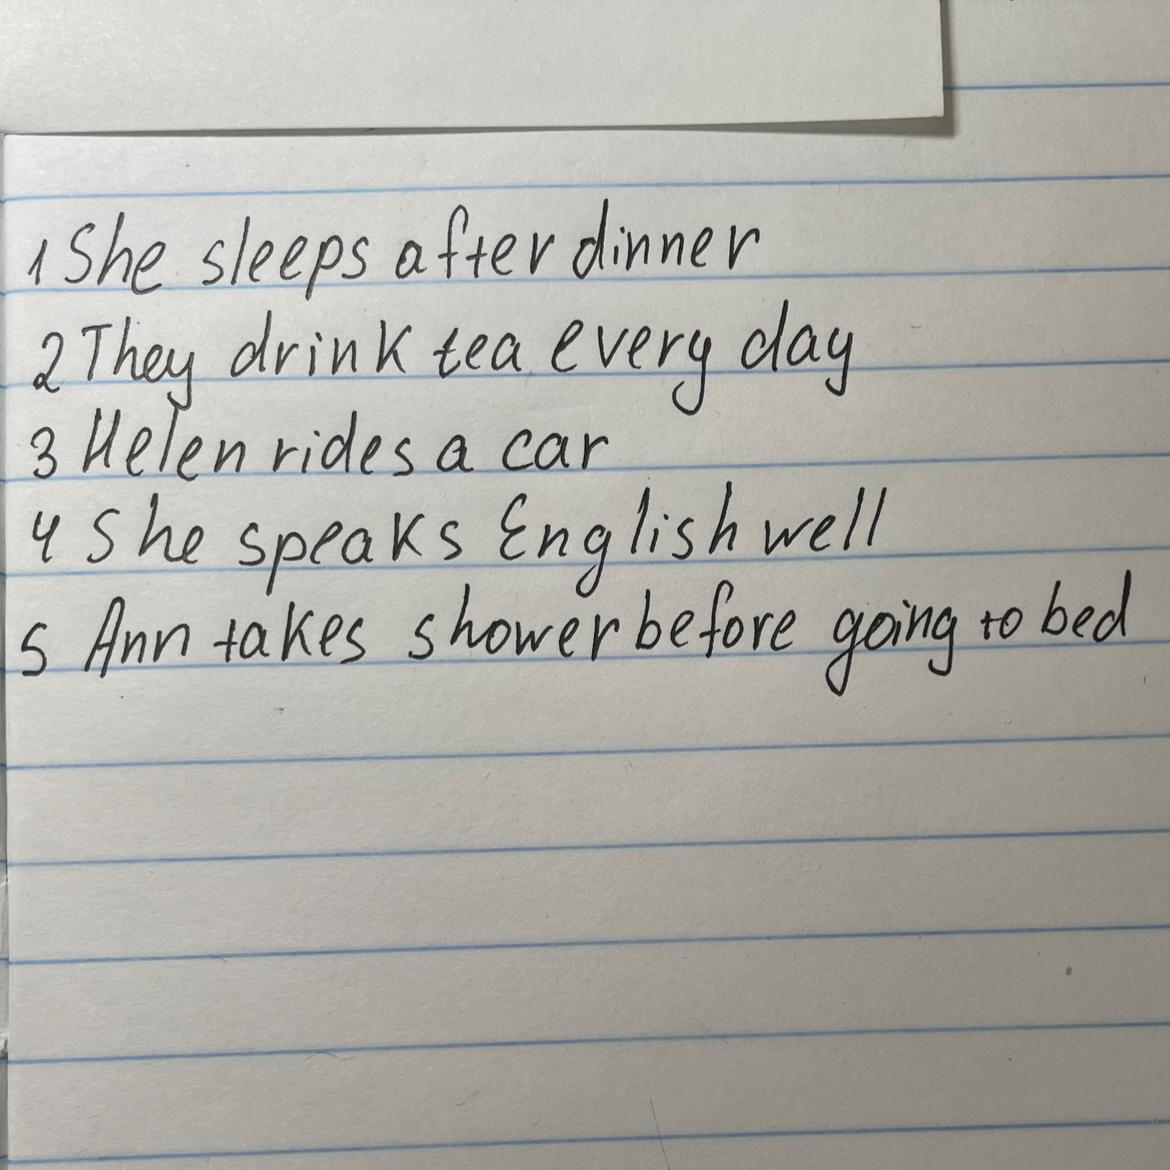 1 She sleeps after dinner
2 They drink tea every day
3 Helen rides a car
4 She speaks English well
5 Ann takes shower before going to bed